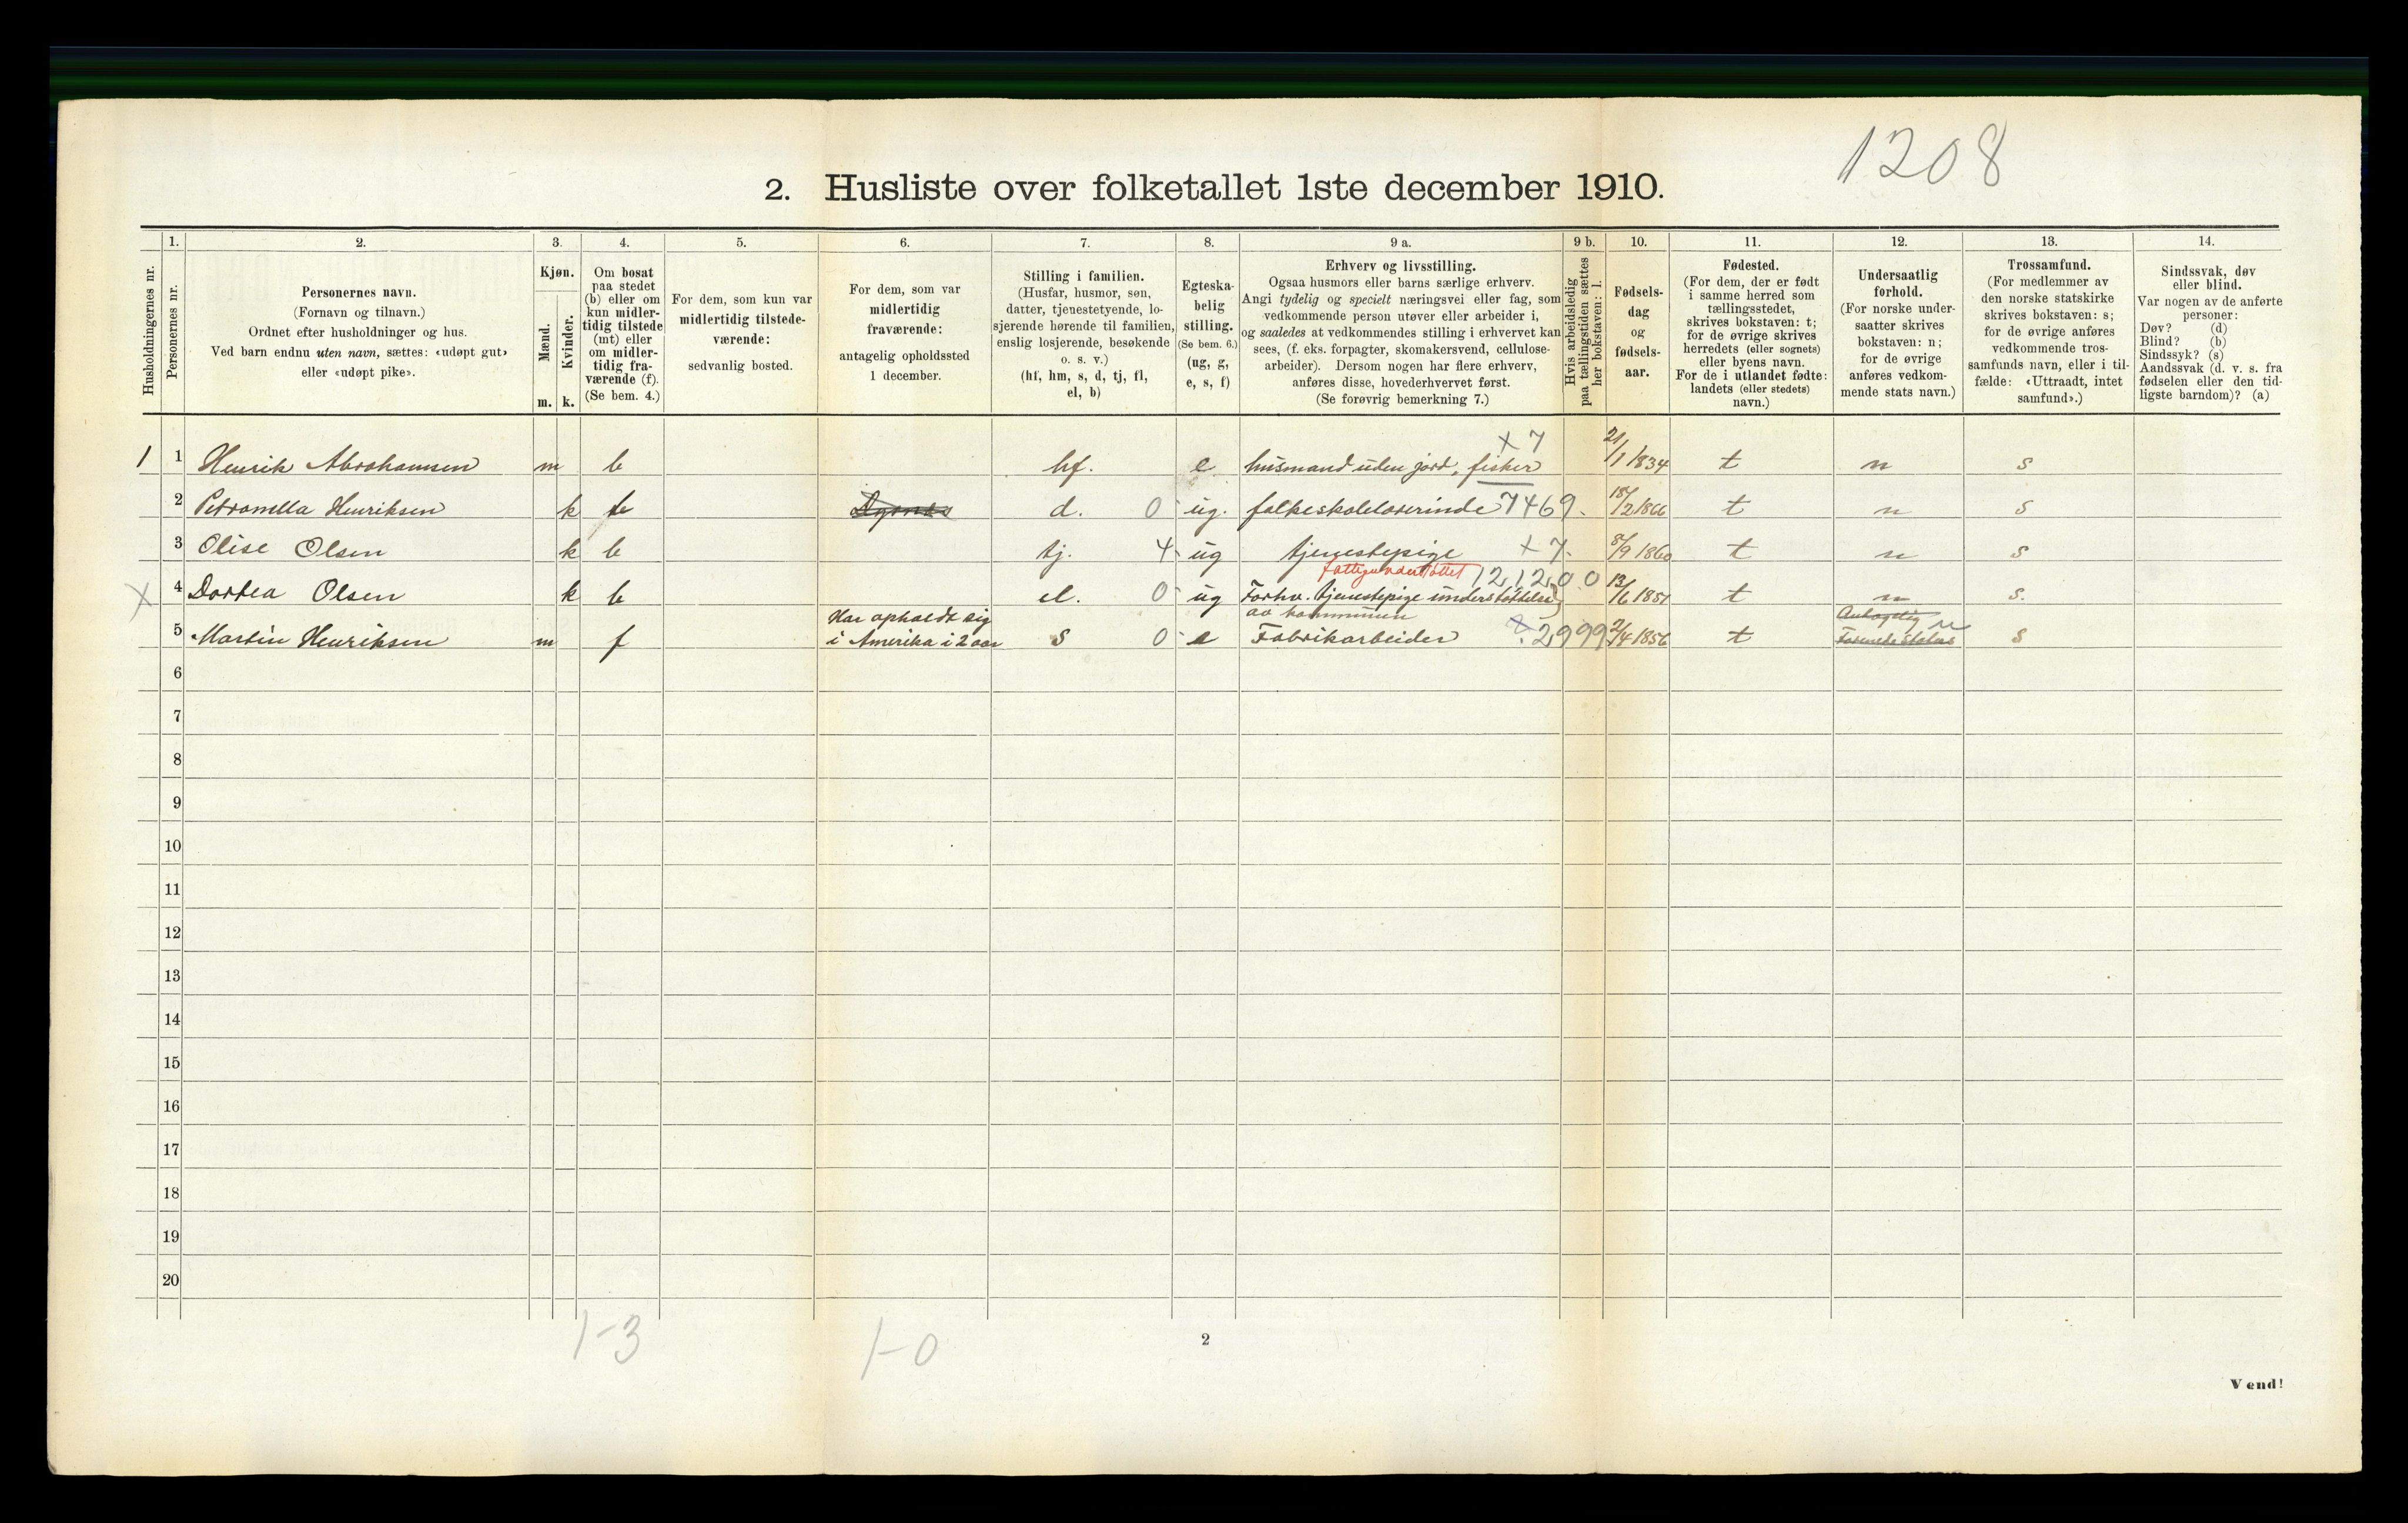 1208
2. Husliste over folketallet 1ste december 1910.
Husholdningernes nr.
1.
Personernes nr.
2.
Personernes navn.
(Fornavn og tilnavn.)
Ordnet efter husholdninger og hus.
Ved barn endnu uten navn, sættes: «udøpt gut»
eller «udøpt pike».
3.
Kjøn.
Mænd.
Kvinder.
m. k.
4.
Om bosat
paa stedet
(b) eller om
kun midler-
tidig tilstede
(mt) eller
om midler-
tidig fra-
værende (f).
(Se bem. 4.)
5.
For dem, som kun var
midlertidig tilstede-
værende:
sedvanlig bosted.
6.
For dem, som var
midlertidig
fraværende:
antagelig opholdssted
1 december.
7.
Stilling i familien.
(Husfar, husmor, søn,
datter, tjenestetyende, lo-
sjerende hørende til familien,
enslig losjerende, besøkende
o. s. v.)
(hf, hm, s, d, tj, fl,
el, b)
8.
Egteska-
belig
stilling.
(Se bem. 6.)
(ug, g,
e, s, f)
9 a.
Erhverv og livsstilling.
Ogsaa husmors eller barns særlige erhverv.
Angi tydelig og specielt næringsvei eller fag, som
vedkommende person utøver eller arbeider i,
og saaledes at vedkommendes stilling i erhvervet kan
sees, (f. eks. forpagter, skomakersvend, cellulose-
arbeider). Dersom nogen har flere erhverv,
anføres disse, hovederhvervet først.
(Se forøvrig bemerkning 7.)
9 b.
Hvis arbeidsledig
paa tællingstiden sættes
her bokstaven: l.
10.
Fødsels-
dag
og
fødsels-
aar.
11.
Fødested.
(For dem, der er født
i samme herred som
tællingsstedet,
skrives bokstaven: t;
for de øvrige skrives
herredets (eller sognets)
eller byens navn.
For de i utlandet fødte:
landets (eller stedets)
navn.)
12.
Undersaatlig
forhold.
(For norske under-
saatter skrives
bokstaven: n;
for de øvrige
anføres vedkom-
mende stats navn.)
13.
Trossamfund.
(For medlemmer av
den norske statskirke
skrives bokstaven: s;
for de øvrige anføres
vedkommende tros-
samfunds navn, eller i til-
fælde: «Uttraadt, intet
samfund».)
14.
Sindssvak, døv
eller blind.
Var nogen av de anførte
personer:
Døv? (d)
Blind? (b)
Sindssyk? (s)
Aandssvak (d. v. s. fra
fødselen eller den tid-
ligste barndom)? (a)
1 1 Henrik Abrahamsen m b hf. e husmand uden jord, fisker x 7 21/1 1834 t n s
2 Petronella Henriksen k b d. 0 ug. folkeskolelærerinde 7469. 18/2 1866 t n s
3 Olise Olsen k b tj. 4 ug tjenestepige x 7. 8/9 1860 t n s
x 4 Dortea Olsen k b el. 0 ug fattigunderstøttet 12,12,00
Forhv. tjenestepige understøttelse
av kommunen 13/6 1851 t n s.
5 Martin Henriksen m f Har opholdt sig
i Amerika i 2 aar s 0 e Fabrikarbeider 2999 2/4 1856 t Antagelig
Forenede Stater n s
6
7
8
9
10
11
12
13
14
15
16
17
18
19
20
1-3
1-0
2
Vend!